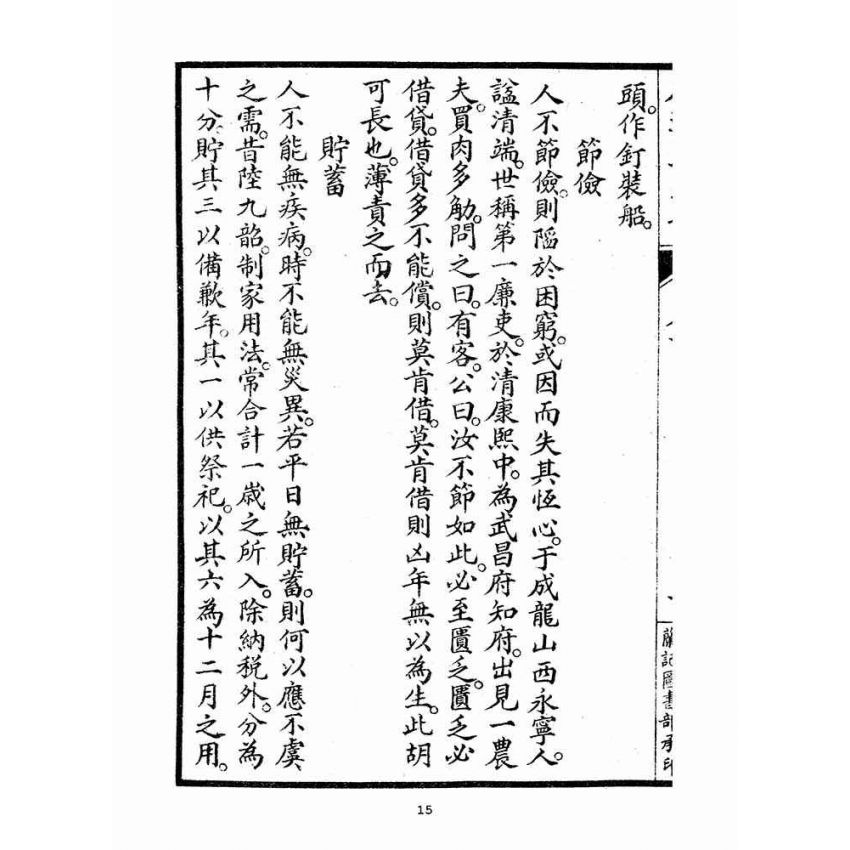 頭。作釘裝船。
節儉
人不節儉。則陷於困窮。或因而失其恆心。于成龍山西永寧人。
諡清端。世稱第一廉吏。於清康熙中。為武昌府知府。出見一農
夫。買肉多觔。問之曰。有客。公曰。汝不節如此。必至匱乏。匱乏必
借貸。借貸多不能償。則莫肯借。莫肯借則凶年無以為生。此胡
可長也。薄責之而去。
貯蓄
人不能無疾病。時不能無災異。若平日無貯蓄。則何以應不虞
之需。昔陸九韶。制家用法。常合計一歲之所入。除納稅外。分為
十分。貯其三以備歉年。其一以供祭祀。以其六為十二月之用。
蘭記圖書部承印
15